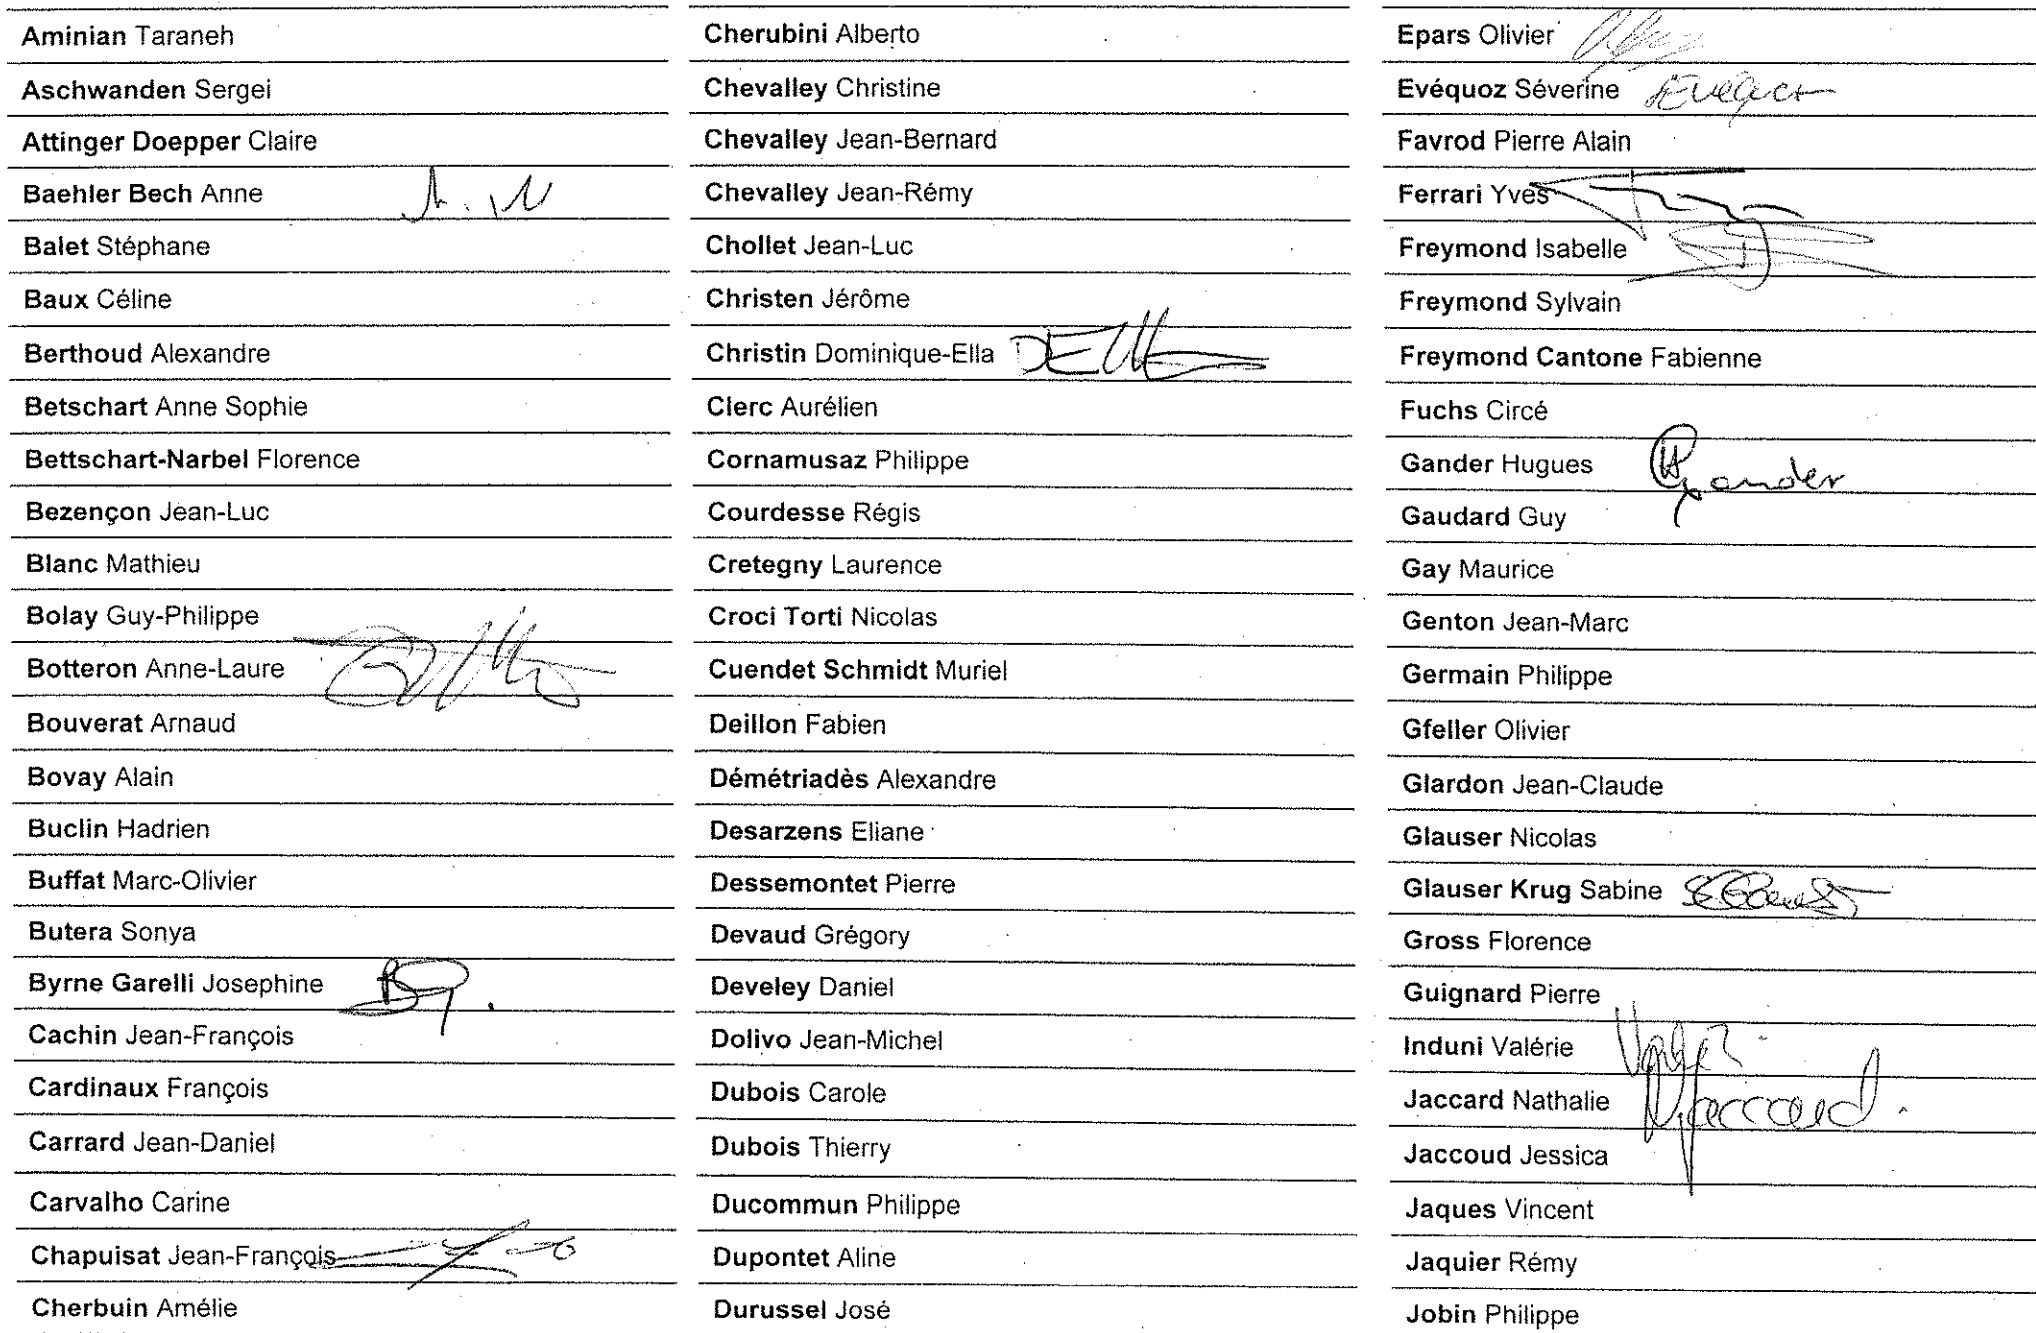 Aminian Taraneh
Aschwanden Sergei
Attinger Doepper Claire
Baehler Bech Anne
Balet Stéphane
Baux Céline
Berthoud Alexandre
Betschart Anne Sophie
Bettschart-Narbel Florence
Bezençon Jean-Luc
Blanc Mathieu
Bolay Guy-Philippe
Botteron Anne-Laure
Bouverat Arnaud
Bovay Alain
Buclin Hadrien
Buffat Marc-Olivier
Butera Sonya
Byrne Garelli Josephine
Cachin Jean-François
Cardinaux François
Carrard Jean-Daniel
Carvalho Carine
Chapuisat Jean-François
Cherbuin Amélie
Cherubini Alberto
Chevalley Christine
Chevalley Jean-Bernard
Chevalley Jean-Rémy
Chollet Jean-Luc
Christen Jérôme
Christin Dominique-Ella
Clerc Aurélien
Cornamusaz Philippe
Courdesse Régis
Cretegny Laurence
Croci Torti Nicolas
Cuendet Schmidt Muriel
Deillon Fabien
Démétriadès Alexandre
Desarzens Eliane
Dessemontet Pierre
Devaud Grégory
Develey Daniel
Dolivo Jean-Michel
Dubois Carole
Dubois Thierry
Ducommun Philippe
Dupontet Aline
Durussel José
Epars Olivier
Evéquoz Séverine
Favrod Pierre Alain
Ferrari Yves
Freymond Isabelle
Freymond Sylvain
Freymond Cantone Fabienne
Fuchs Circé
Gander Hugues Gander
Gaudard Guy
Gay Maurice
Genton Jean-Marc
Germain Philippe
Gfeller Olivier
Glardon Jean-Claude
Glauser Nicolas
Glauser Krug Sabine
Gross Florence
Guignard Pierre
Induni Valérie
Jaccard Nathalie NJaccard
Jaccoud Jessica
Jaques Vincent
Jaquier Rémy
Jobin Philippe